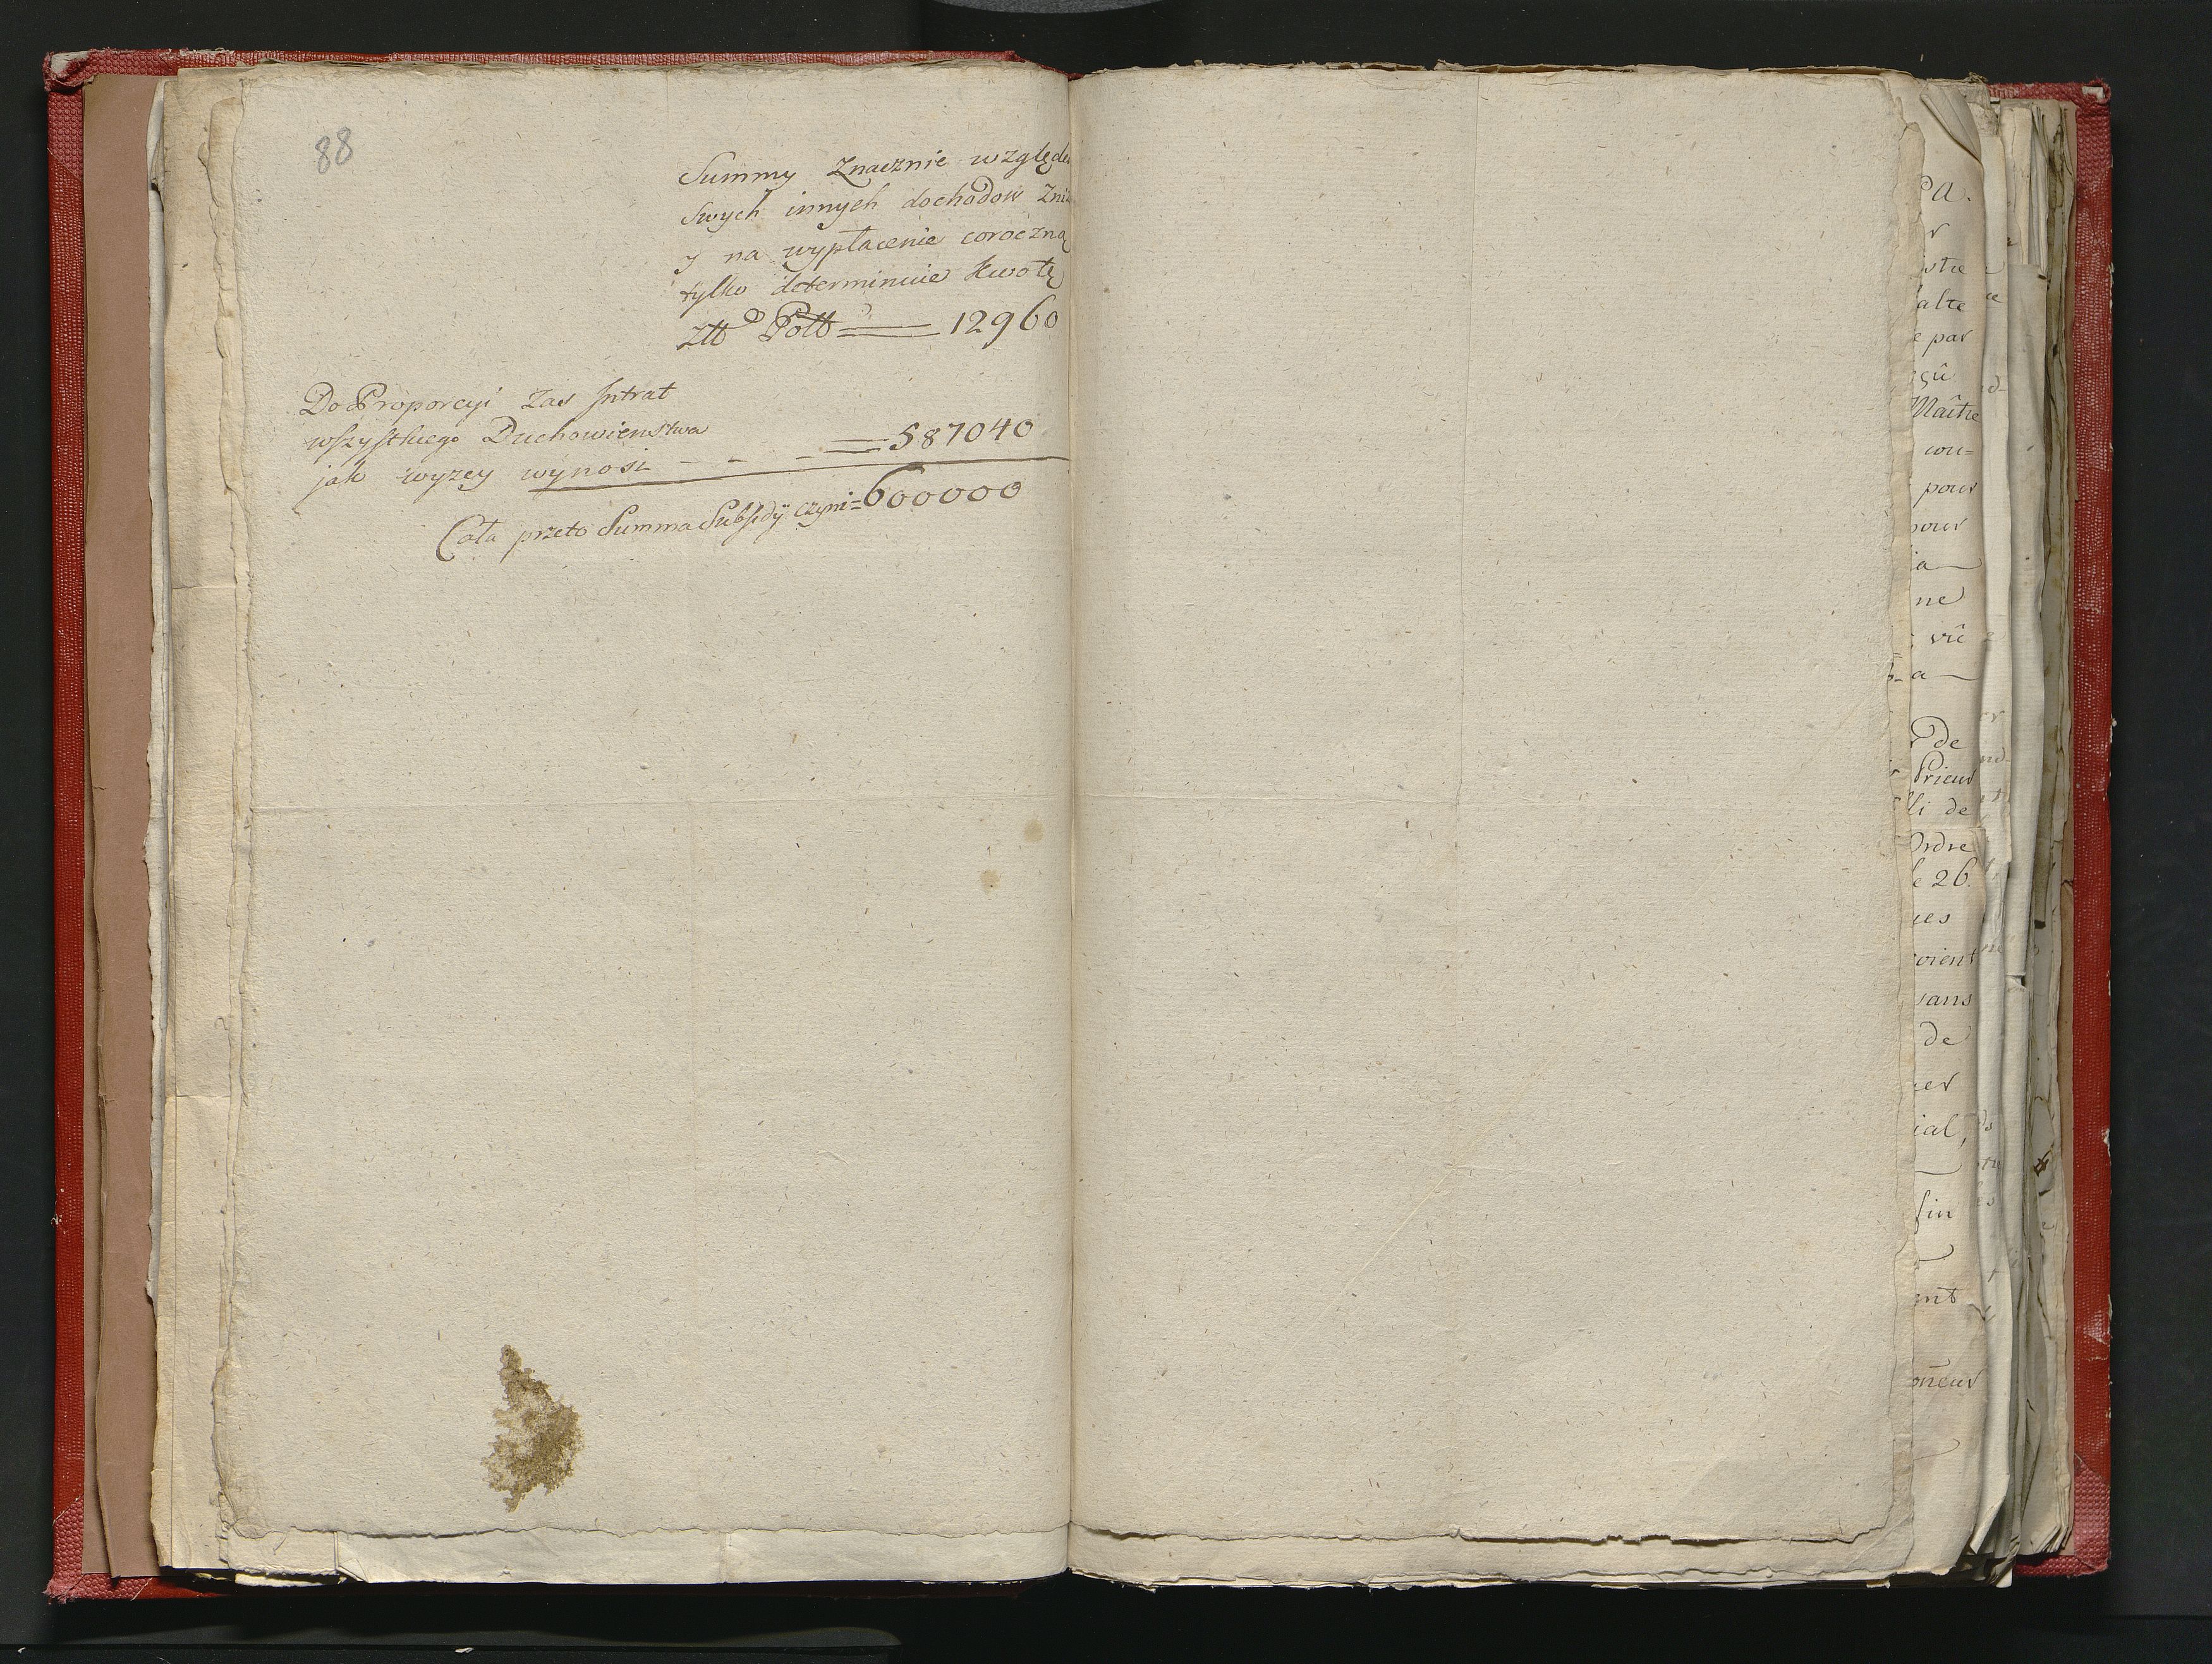 88
Summy Znacznie względe
swych innych dochodow Zni
y na wypłacenie coroczną
tylko determinuie Kwotę
Złł Poll = 12960
Do Proporcyi zas Intrat
wszystkiego Duchowienstwa
jak wyzey wynosi - - - = 587040
Cała przeto Summa Subsidÿ czyni = 600000
alte
e par
Maître
pour
de
Prieur
li de
Ordre
le 26.
oient
sans
de
ial,
fin